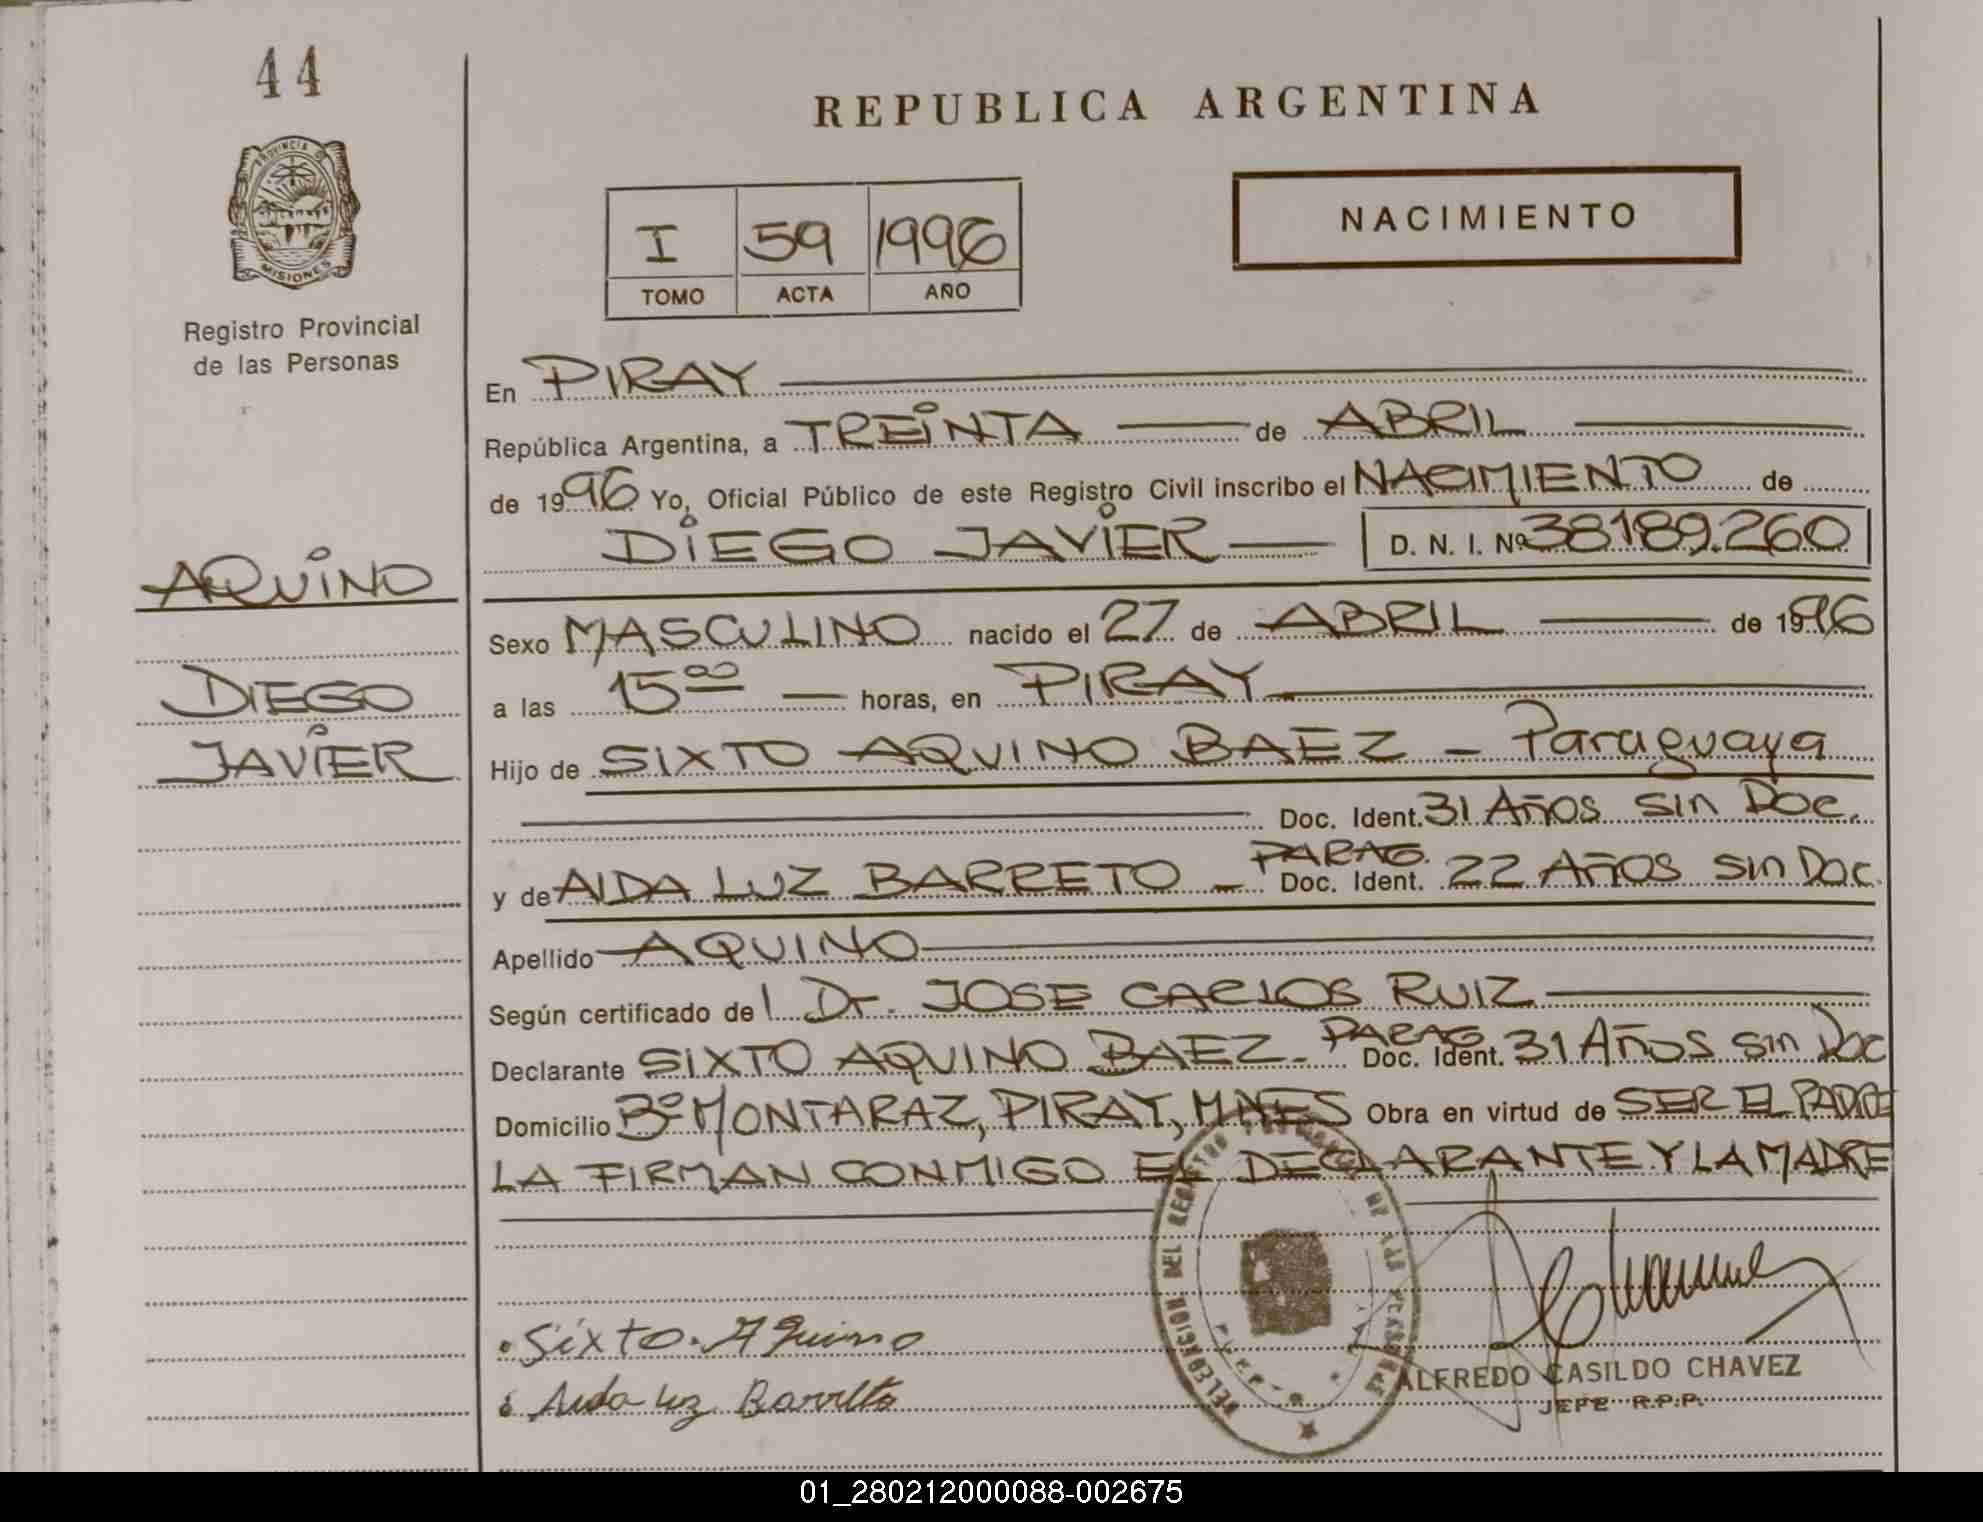 44
PROVINCIA DE
MISIONES
Registro Provincial
de las Personas
AQUINO
DIEGO
JAVIER
REPUBLICA ARGENTINA
I 59 1996
TOMO ACTA AÑO
NACIMIENTO
En PIRAY
República Argentina, a TREINTA de ABRIL
de 1996 Yo, Oficial Público de este Registro Civil inscribo el NACIMIENTO de
DIEGO JAVIER D. N. I. Nº 38189.260
Sexo MASCULINO nacido el 27 de ABRIL de 1996
a las 15 00 horas, en PIRAY
Hijo de SIXTO AQUINO BAEZ - Paraguaya
Doc. Ident. 31 AÑOS SIN DOC.
y de AIDA LUZ BARRETO - PARAG. Doc. Ident. 22 AÑOS SIN DOC.
Apellido AQUINO
Según certificado de l Dr. JOSE CARLOS RUIZ
Declarante SIXTO AQUINO BAEZ - PARAG Doc. Ident. 31 AÑOS SIN DOC
Domicilio Bº MONTARAZ, PIRAY, MNES Obra en virtud de SER EL PADRE
LA FIRMAN CONMIGO EL DECLARANTE Y LA MADRE
Sixto Aquino
Aida luz Barreto
DELEGACION DEL REGISTRO DE LAS PERSONAS
ALFREDO CASILDO CHAVEZ
JEFE R.P.P.
01_280212000088-002675